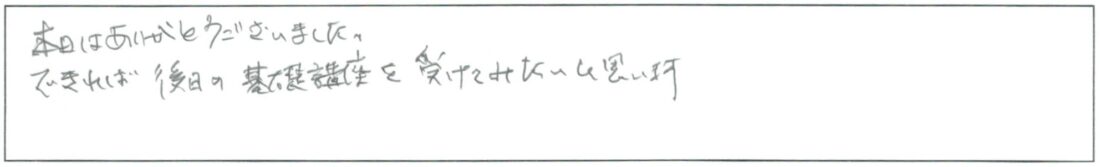 本日はありがとうございました。
できれば後日の基礎講座を受けてみたいと思います